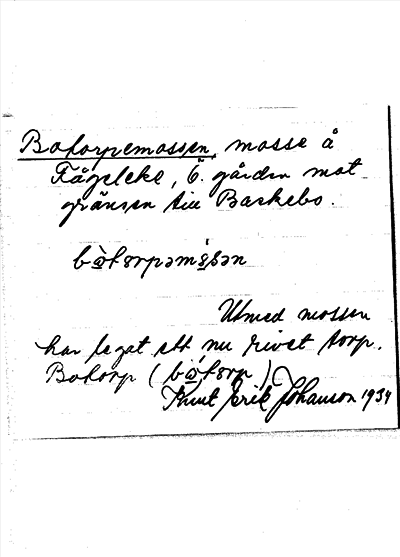 Botorpemossen, mosse å
Fågeleke, Ö. gården mot
gränsen till Backebo.
bò̱torpəmó̱sən
Utmed mossen
har legat ett, nu rivet torp.
Botorp (bò̱torp)
Knut Erik Johanson 1934